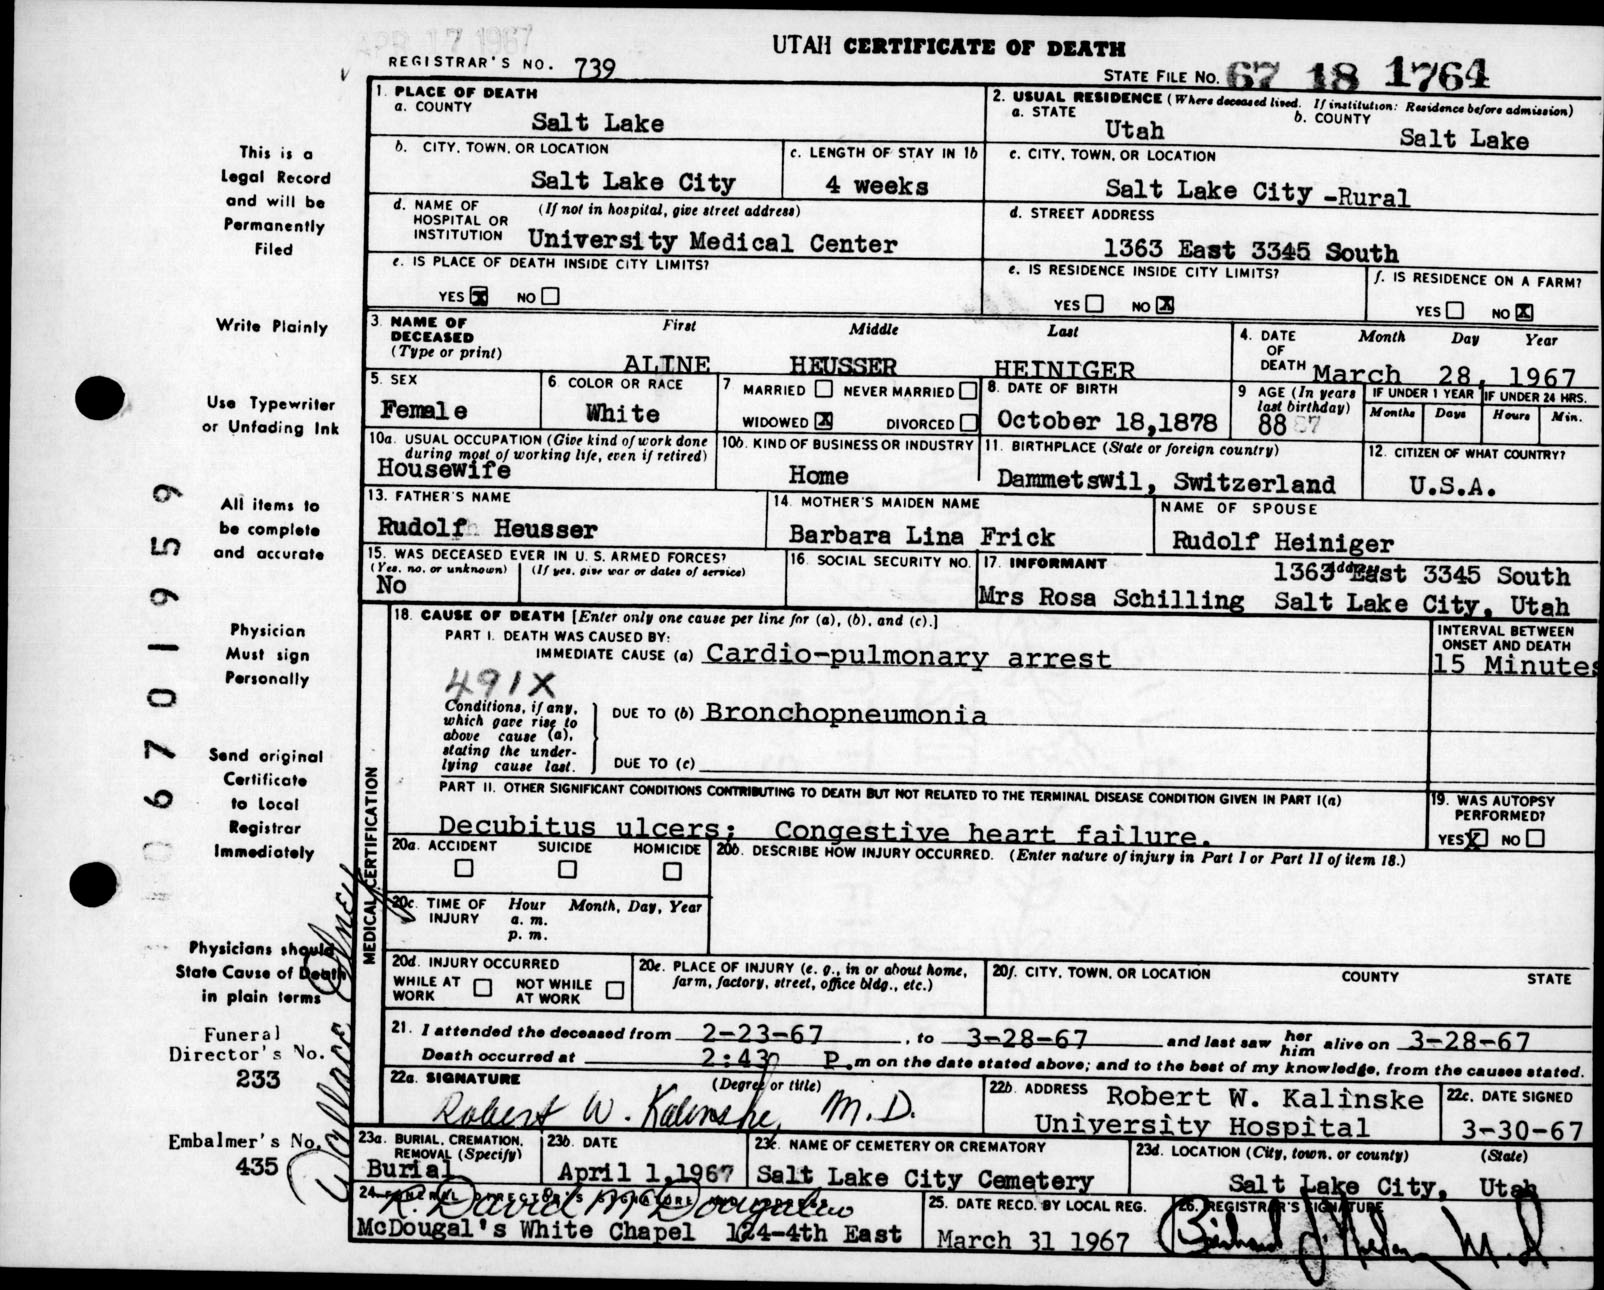 APR 17 1967
UTAH CERTIFICATE OF DEATH
REGISTRAR'S NO. 739
STATE FILE NO. 67 18 1764
This is a
Legal Record
and will be
Permanently
Filed
Write Plainly
Use Typewriter
or Unfading Ink
All items to
be complete
and accurate
Physician
Must sign
Personally
Send original
Certificate
to Local
Registrar
Immediately
Physicians should
State Cause of Death
in plain terms
Funeral
Director's No.
233
Embalmer's No.
435
0 6 7 0 1 9 5 9
Wallace
1. PLACE OF DEATH
a. COUNTY
Salt Lake
2. USUAL RESIDENCE (Where deceased lived. If institution: Residence before admission)
a. STATE b. COUNTY
Utah Salt Lake
b. CITY, TOWN, OR LOCATION
Salt Lake City
c. LENGTH OF STAY IN 1b
4 weeks
c. CITY, TOWN, OR LOCATION
Salt Lake City -Rural
d. NAME OF HOSPITAL OR INSTITUTION (If not in hospital, give street address)
University Medical Center
d. STREET ADDRESS
1363 East 3345 South
e. IS PLACE OF DEATH INSIDE CITY LIMITS?
YES X NO
e. IS RESIDENCE INSIDE CITY LIMITS?
YES NO X
f. IS RESIDENCE ON A FARM?
YES NO X
3. NAME OF DECEASED (Type or print)
First Middle Last
ALINE HEUSSER HEINIGER
4. DATE OF DEATH
Month Day Year
March 28, 1967
5. SEX
Female
6 COLOR OR RACE
White
7 MARRIED NEVER MARRIED
WIDOWED X DIVORCED
8. DATE OF BIRTH
October 18,1878
9 AGE (In years last birthday)
88 87
IF UNDER 1 YEAR
Months Days
IF UNDER 24 HRS.
Hours Min.
10a. USUAL OCCUPATION (Give kind of work done during most of working life, even if retired)
Housewife
10b. KIND OF BUSINESS OR INDUSTRY
Home
11. BIRTHPLACE (State or foreign country)
Dammetswil, Switzerland
12. CITIZEN OF WHAT COUNTRY?
U.S.A.
13. FATHER'S NAME
Rudolf Heusser
14. MOTHER'S MAIDEN NAME
Barbara Lina Frick
NAME OF SPOUSE
Rudolf Heiniger
15. WAS DECEASED EVER IN U. S. ARMED FORCES?
(Yes, no, or unknown) (If yes, give war or dates of service)
No
16. SOCIAL SECURITY NO.
17. INFORMANT Address
1363 East 3345 South
Mrs Rosa Schilling Salt Lake City, Utah
MEDICAL CERTIFICATION
18. CAUSE OF DEATH [Enter only one cause per line for (a), (b), and (c).]
PART I. DEATH WAS CAUSED BY:
IMMEDIATE CAUSE (a) Cardio-pulmonary arrest
INTERVAL BETWEEN ONSET AND DEATH
15 Minutes
491X
Conditions, if any, which gave rise to above cause (a), stating the underlying cause last.
DUE TO (b) Bronchopneumonia
DUE TO (c)
PART II. OTHER SIGNIFICANT CONDITIONS CONTRIBUTING TO DEATH BUT NOT RELATED TO THE TERMINAL DISEASE CONDITION GIVEN IN PART I(a)
Decubitus ulcers; Congestive heart failure.
19. WAS AUTOPSY PERFORMED?
YES X NO
20a. ACCIDENT SUICIDE HOMICIDE
20b. DESCRIBE HOW INJURY OCCURRED. (Enter nature of injury in Part I or Part II of item 18.)
20c. TIME OF INJURY
Hour Month, Day, Year
a. m.
p. m.
20d. INJURY OCCURRED
WHILE AT WORK NOT WHILE AT WORK
20e. PLACE OF INJURY (e. g., in or about home, farm, factory, street, office bldg., etc.)
20f. CITY, TOWN, OR LOCATION COUNTY STATE
21. I attended the deceased from 2-23-67, to 3-28-67 and last saw her him alive on 3-28-67
Death occurred at 2:43 P.m on the date stated above; and to the best of my knowledge, from the causes stated.
22a. SIGNATURE (Degree or title)
Robert W. Kalinske, M.D.
22b. ADDRESS Robert W. Kalinske
University Hospital
22c. DATE SIGNED
3-30-67
23a. BURIAL, CREMATION, REMOVAL (Specify)
Burial
23b. DATE
April 1,1967
23c. NAME OF CEMETERY OR CREMATORY
Salt Lake City Cemetery
23d. LOCATION (City, town, or county) (State)
Salt Lake City, Utah
24. FUNERAL DIRECTOR'S SIGNATURE AND ADDRESS
R. David McDougal
McDougal's White Chapel 124-4th East
25. DATE RECD. BY LOCAL REG.
March 31 1967
26. REGISTRAR'S SIGNATURE